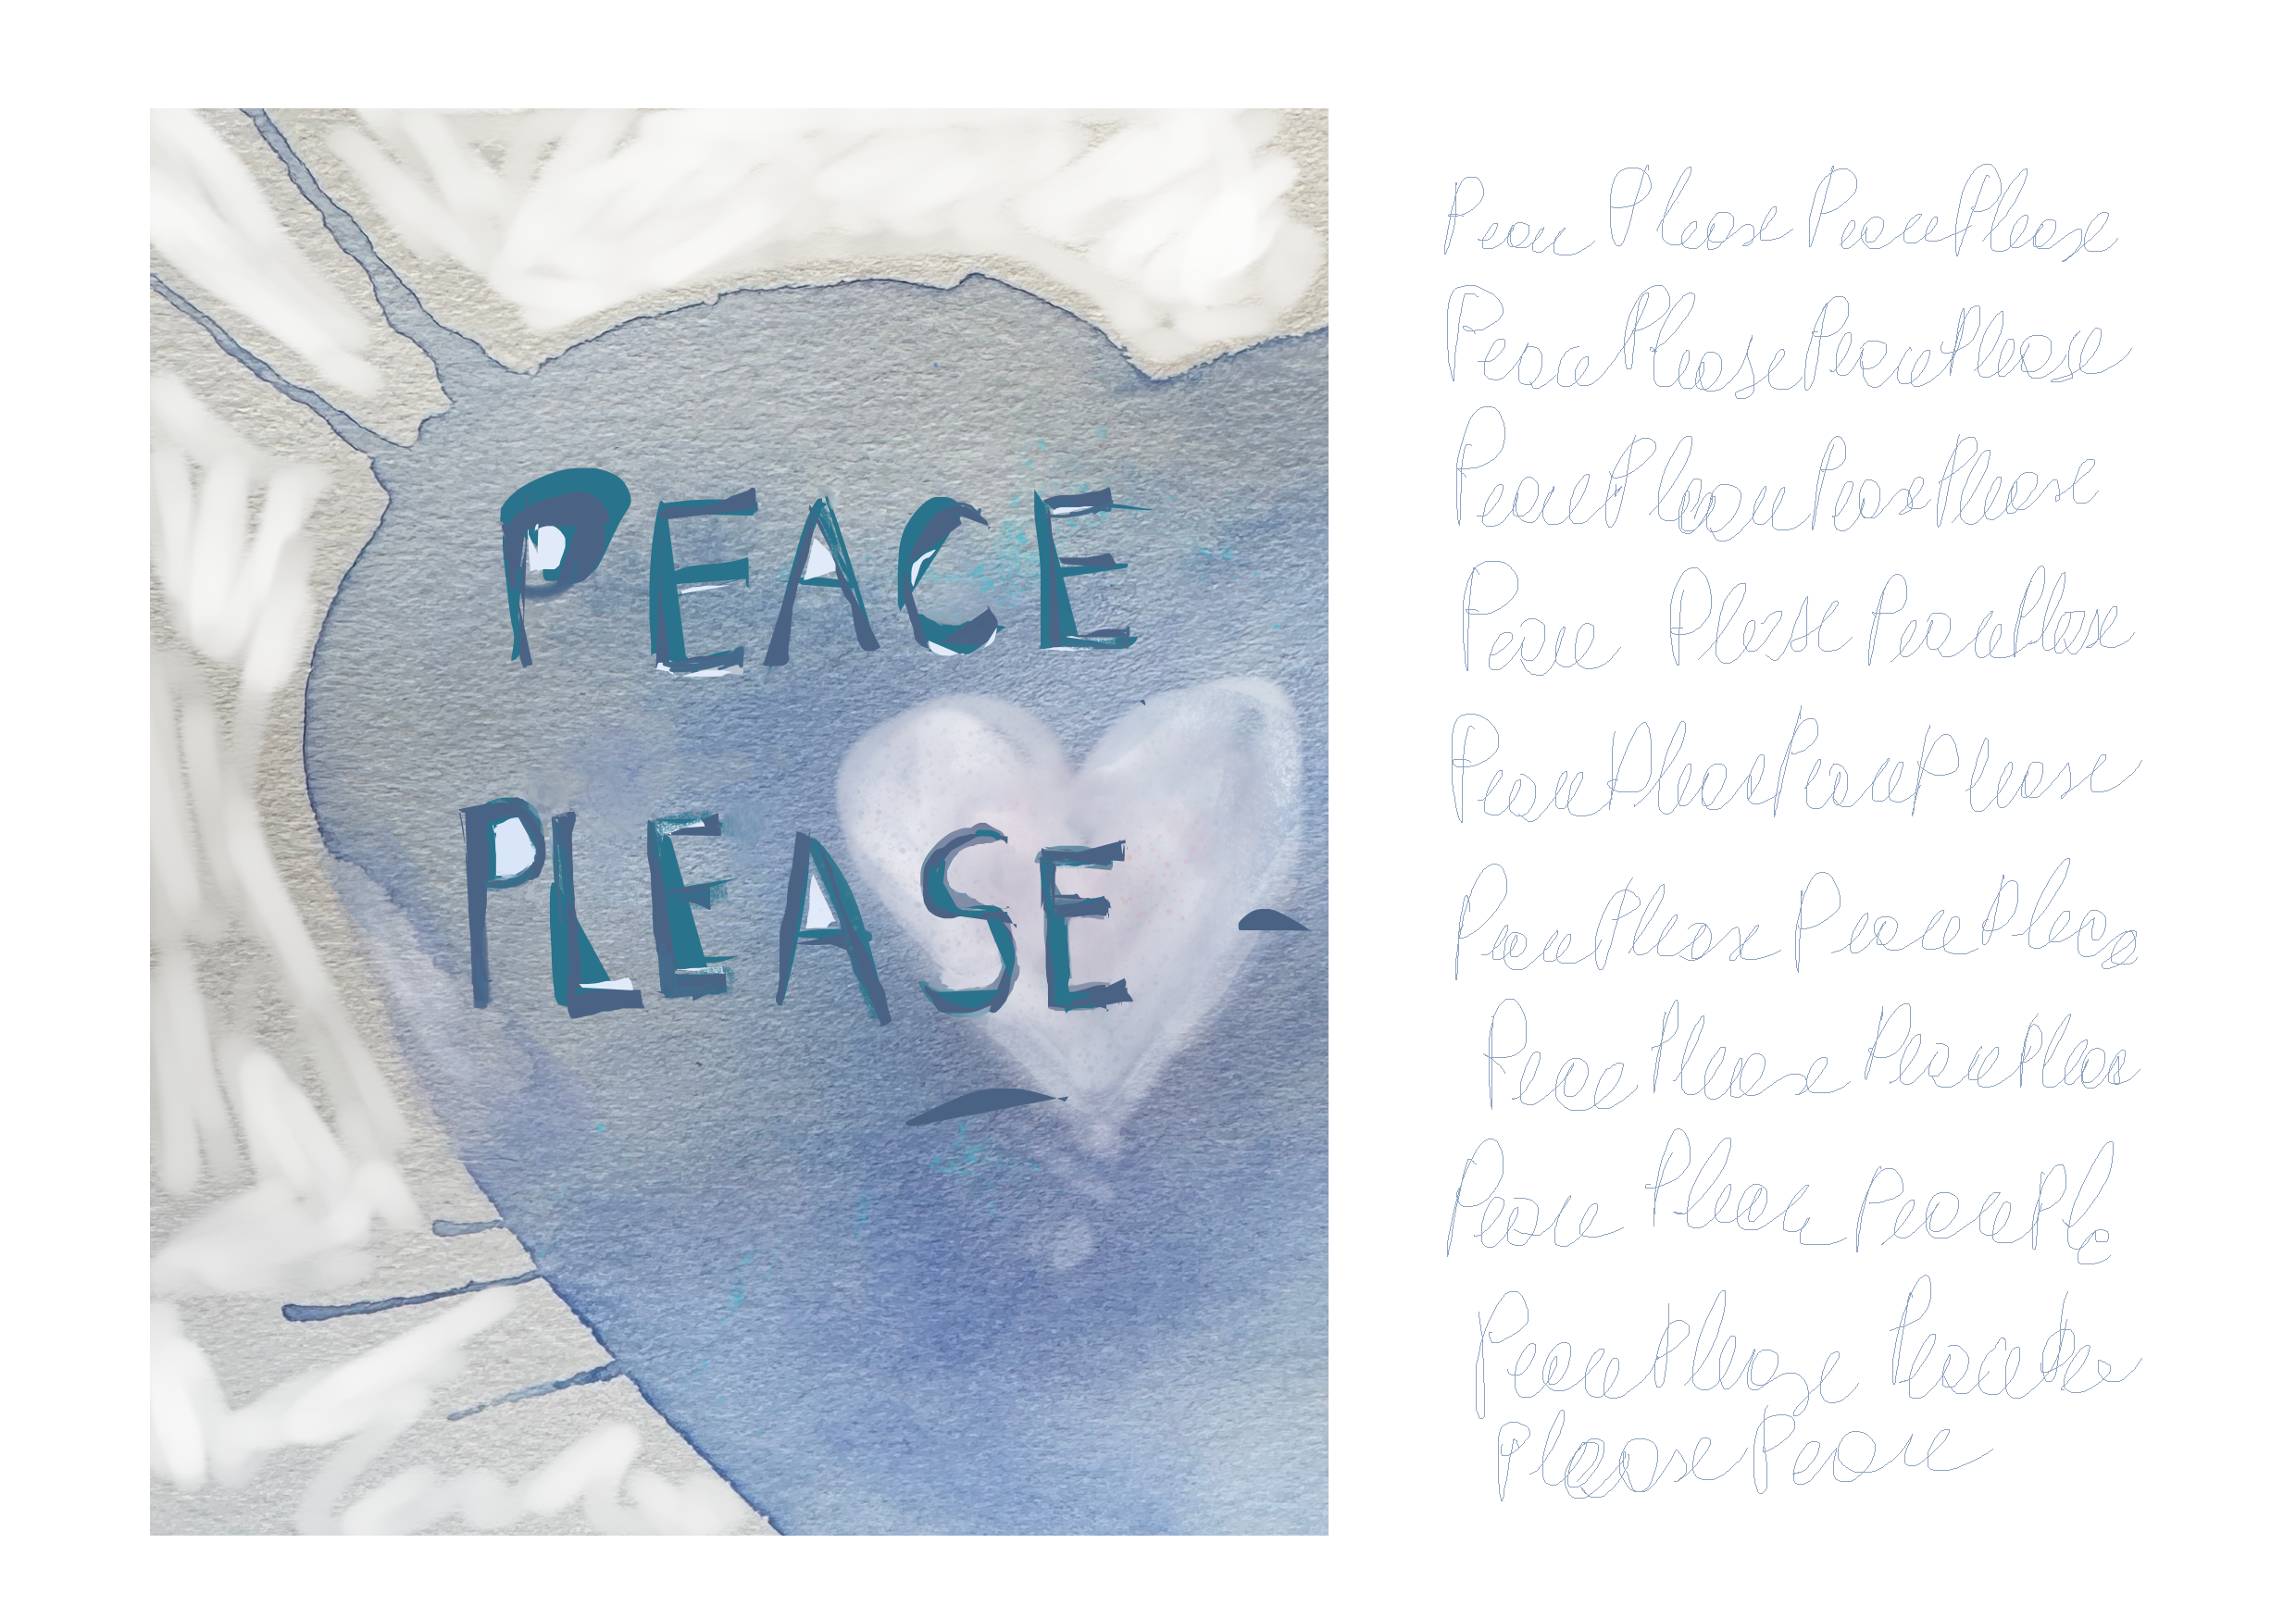 PEACE
PLEASE
Peace Please Peace Please
Peace Please Peace Please
Peace Please Peace Please
Peace Please Peace Please
Peace Please Peace Please
Peace Please Peace Pleas
Peace Please Peace Pleas
Peace Please Peace Ple
Peace Please Peace
Please Peace